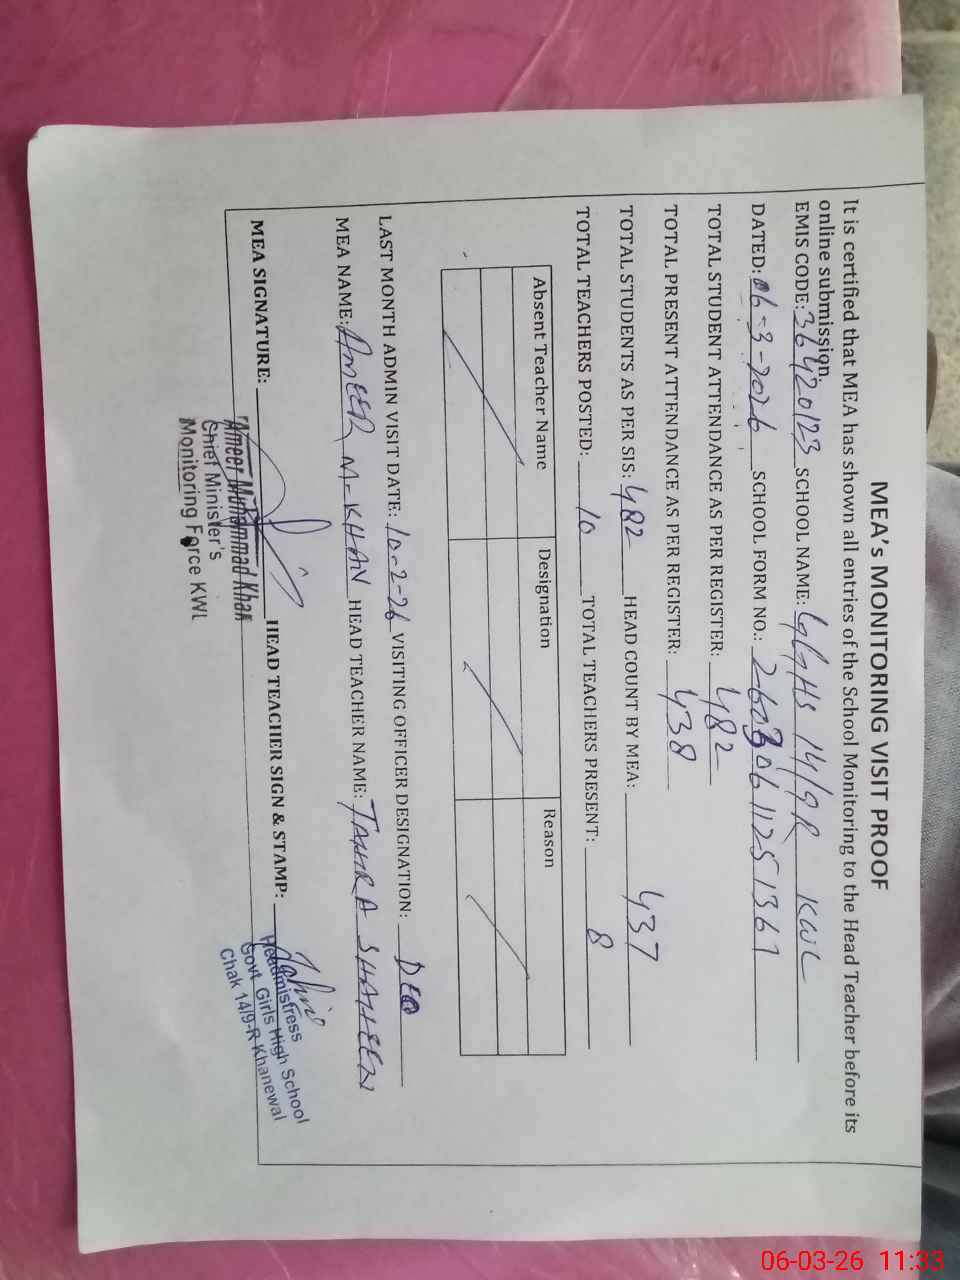 MEA's MONITORING VISIT PROOF
It is certified that MEA has shown all entries of the School Monitoring to the Head Teacher before its
online submission.
EMIS CODE: 36420123 SCHOOL NAME: GGHS 14/9R KWL
DATED: 06-3-2026 SCHOOL FORM NO.: 26030611251367
TOTAL STUDENT ATTENDANCE AS PER REGISTER: 482
TOTAL PRESENT ATTENDANCE AS PER REGISTER: 438
TOTAL STUDENTS AS PER SIS: 482 HEAD COUNT BY MEA: 437
TOTAL TEACHERS POSTED: 10 TOTAL TEACHERS PRESENT: 8
Absent Teacher Name Designation Reason
LAST MONTH ADMIN VISIT DATE: 10-2-26 VISITING OFFICER DESIGNATION: DEO
MEA NAME: AMEER M-KHAN HEAD TEACHER NAME: TAHIRA SHAHEEN
MEA SIGNATURE: HEAD TEACHER SIGN & STAMP:
Ameer Muhammad Khan
Chief Minister's
Monitoring Force KWL
Headmistress
Govt Girls High School
Chak 14/9-R Khanewal
06-03-26 11:33